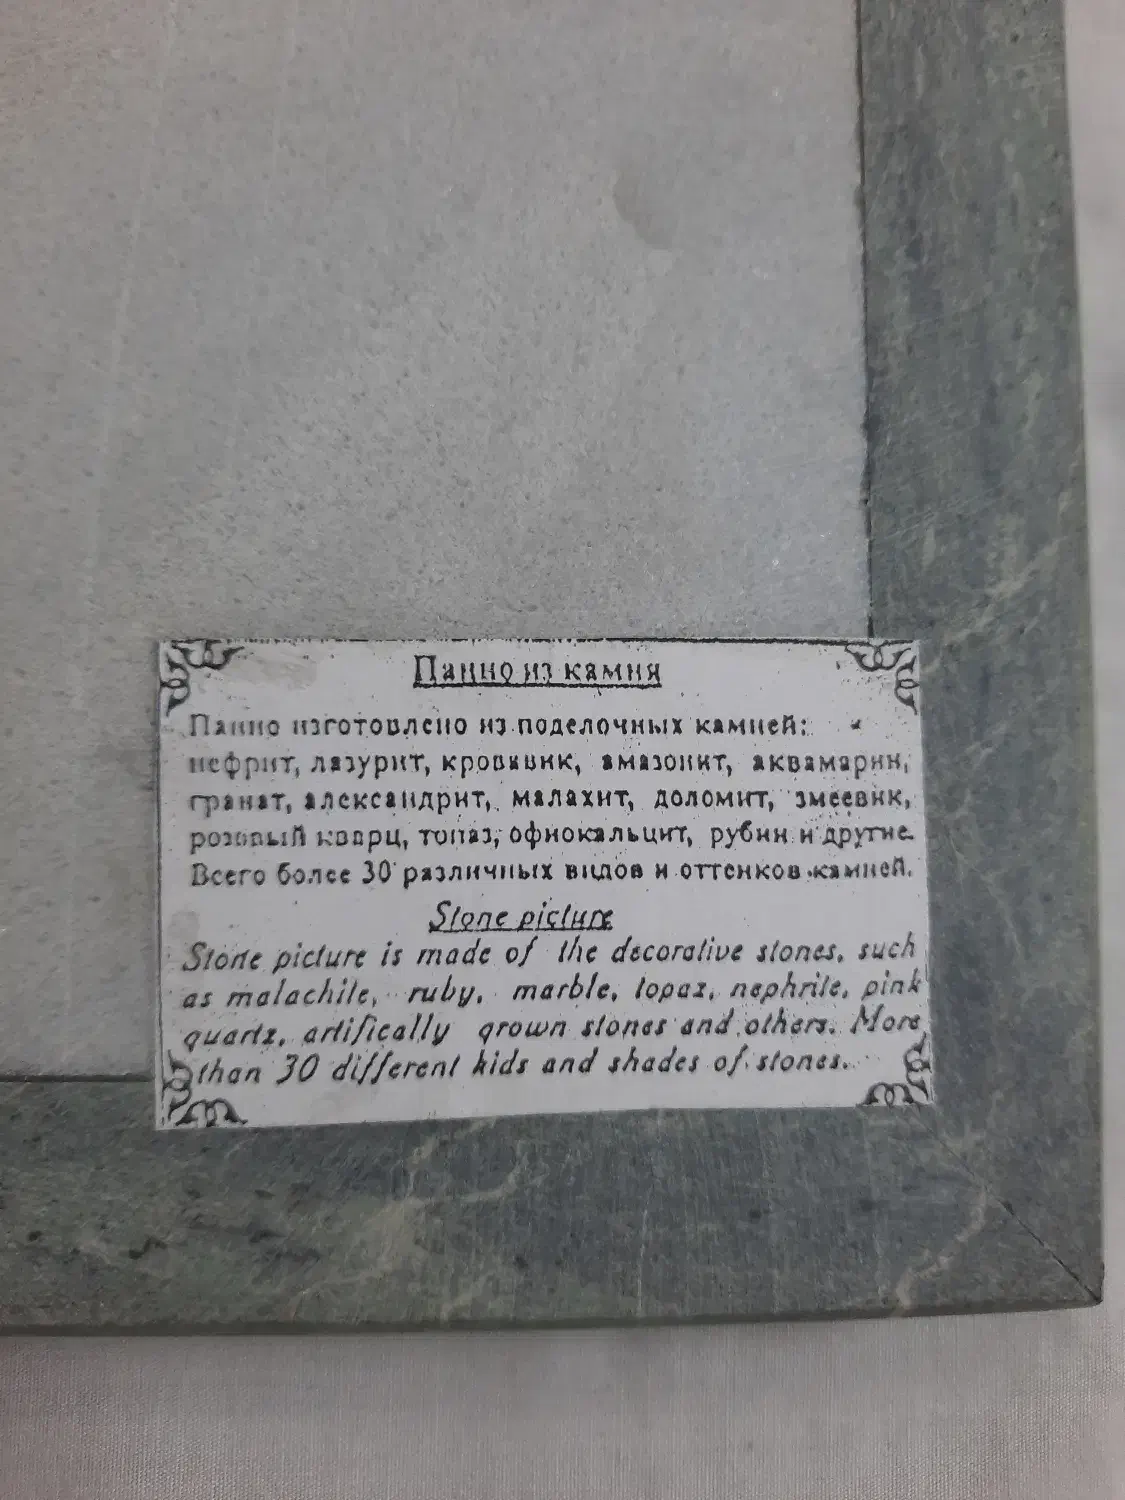 Панно из камня
Панно изготовлено из поделочных камней:
нефрит, лазурит, кровавик, амазонит, аквамарин,
гранат, александрит, малахит, доломит, змеевик,
розовый кварц, топаз, офиокальцит, рубин и другие.
Всего более 30 различных видов и оттенков камней.
Stone picture
Stone picture is made of the decorative stones, such
as malachite, ruby, marble, topaz, nephrite, pink
quartz, artifically grown stones and others. More
than 30 different kids and shades of stones.